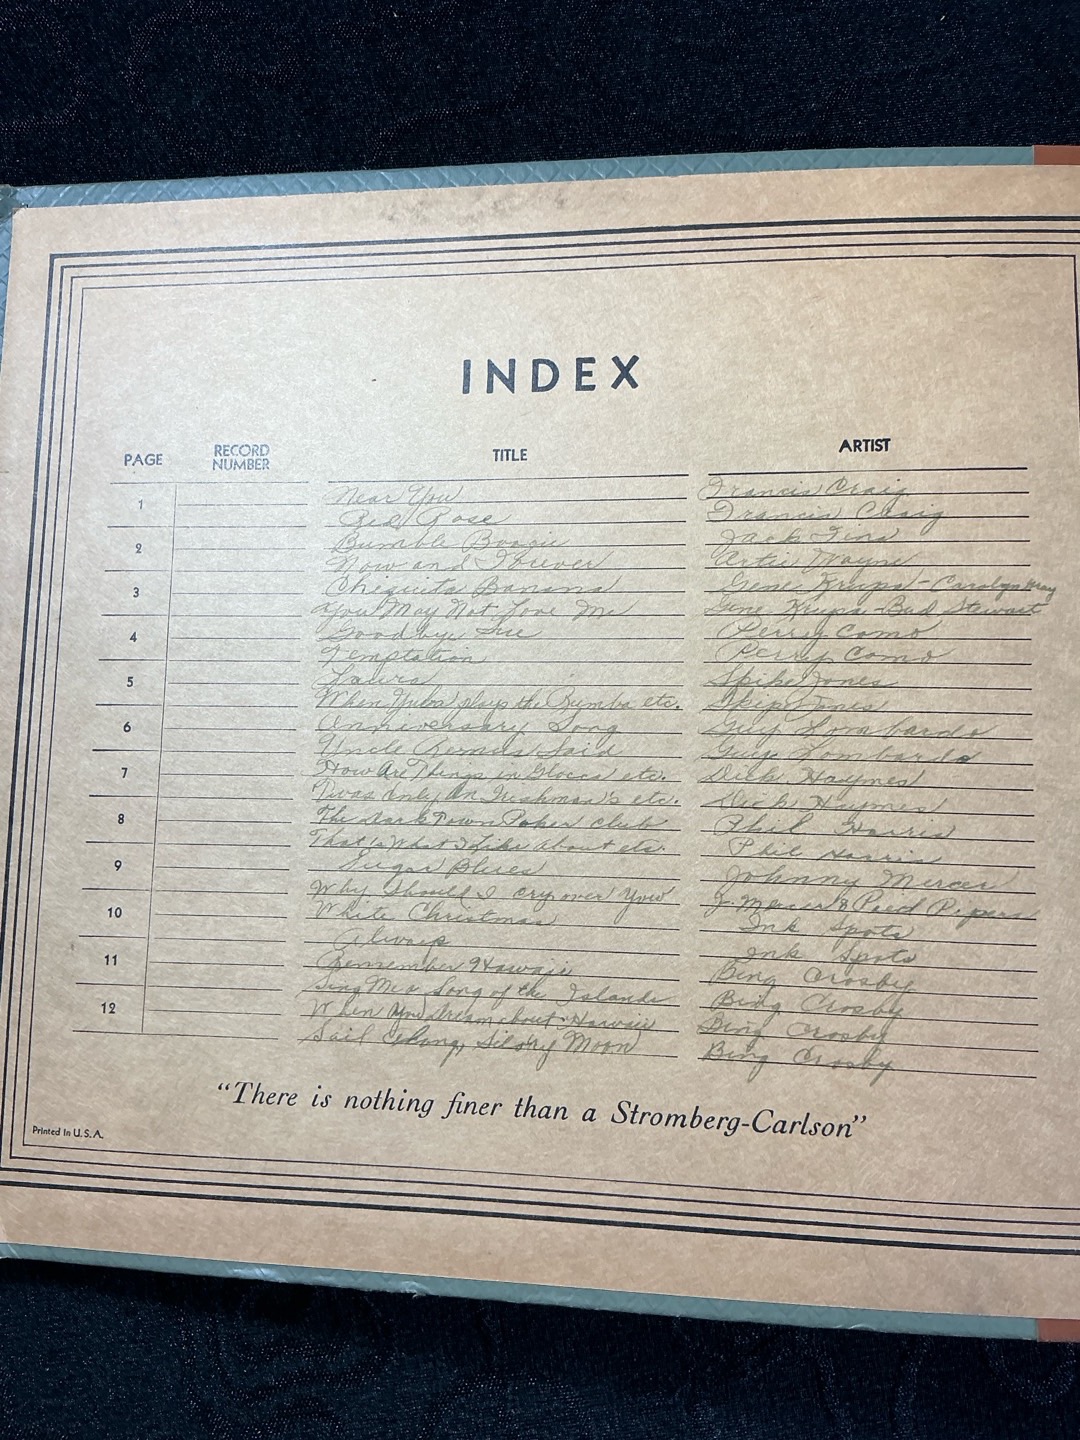 INDEX
PAGE RECORD NUMBER TITLE ARTIST
1 Near You Francis Craig
Red Rose Francis Craig
2 Bumble Boogie Jack Fina
Now and Forever Artie Wayne
3 Chiquita Banana Gene Krupa - Carolyn Grey
You May Not Love Me Gene Krupa - Bud Stewart
4 Goodbye Sue Perry Como
Temptation Perry Como
5 Laura Spike Jones
When Yuba plays the Rumba etc. Spike Jones
6 Anniversary Song Guy Lombardo
Uncle Remus Said Guy Lombardo
7 How Are Things in Glocca etc. Dick Haymes
Twas Only An Irishman's etc. Dick Haymes
8 The Dark Town Poker Club Phil Harris
That's What I Like About etc. Phil Harris
9 Sugar Blues Johnny Mercer
Why Should I cry over You J. Mercer & Pied Pipers
10 White Christmas Ink Spots
Always Ink Spots
11 Remember Hawaii Bing Crosby
Sing Me a Song of the Islands Bing Crosby
12 When You Dream about Hawaii Bing Crosby
Sail Along, Silvry Moon Bing Crosby
"There is nothing finer than a Stromberg-Carlson"
Printed In U.S.A.